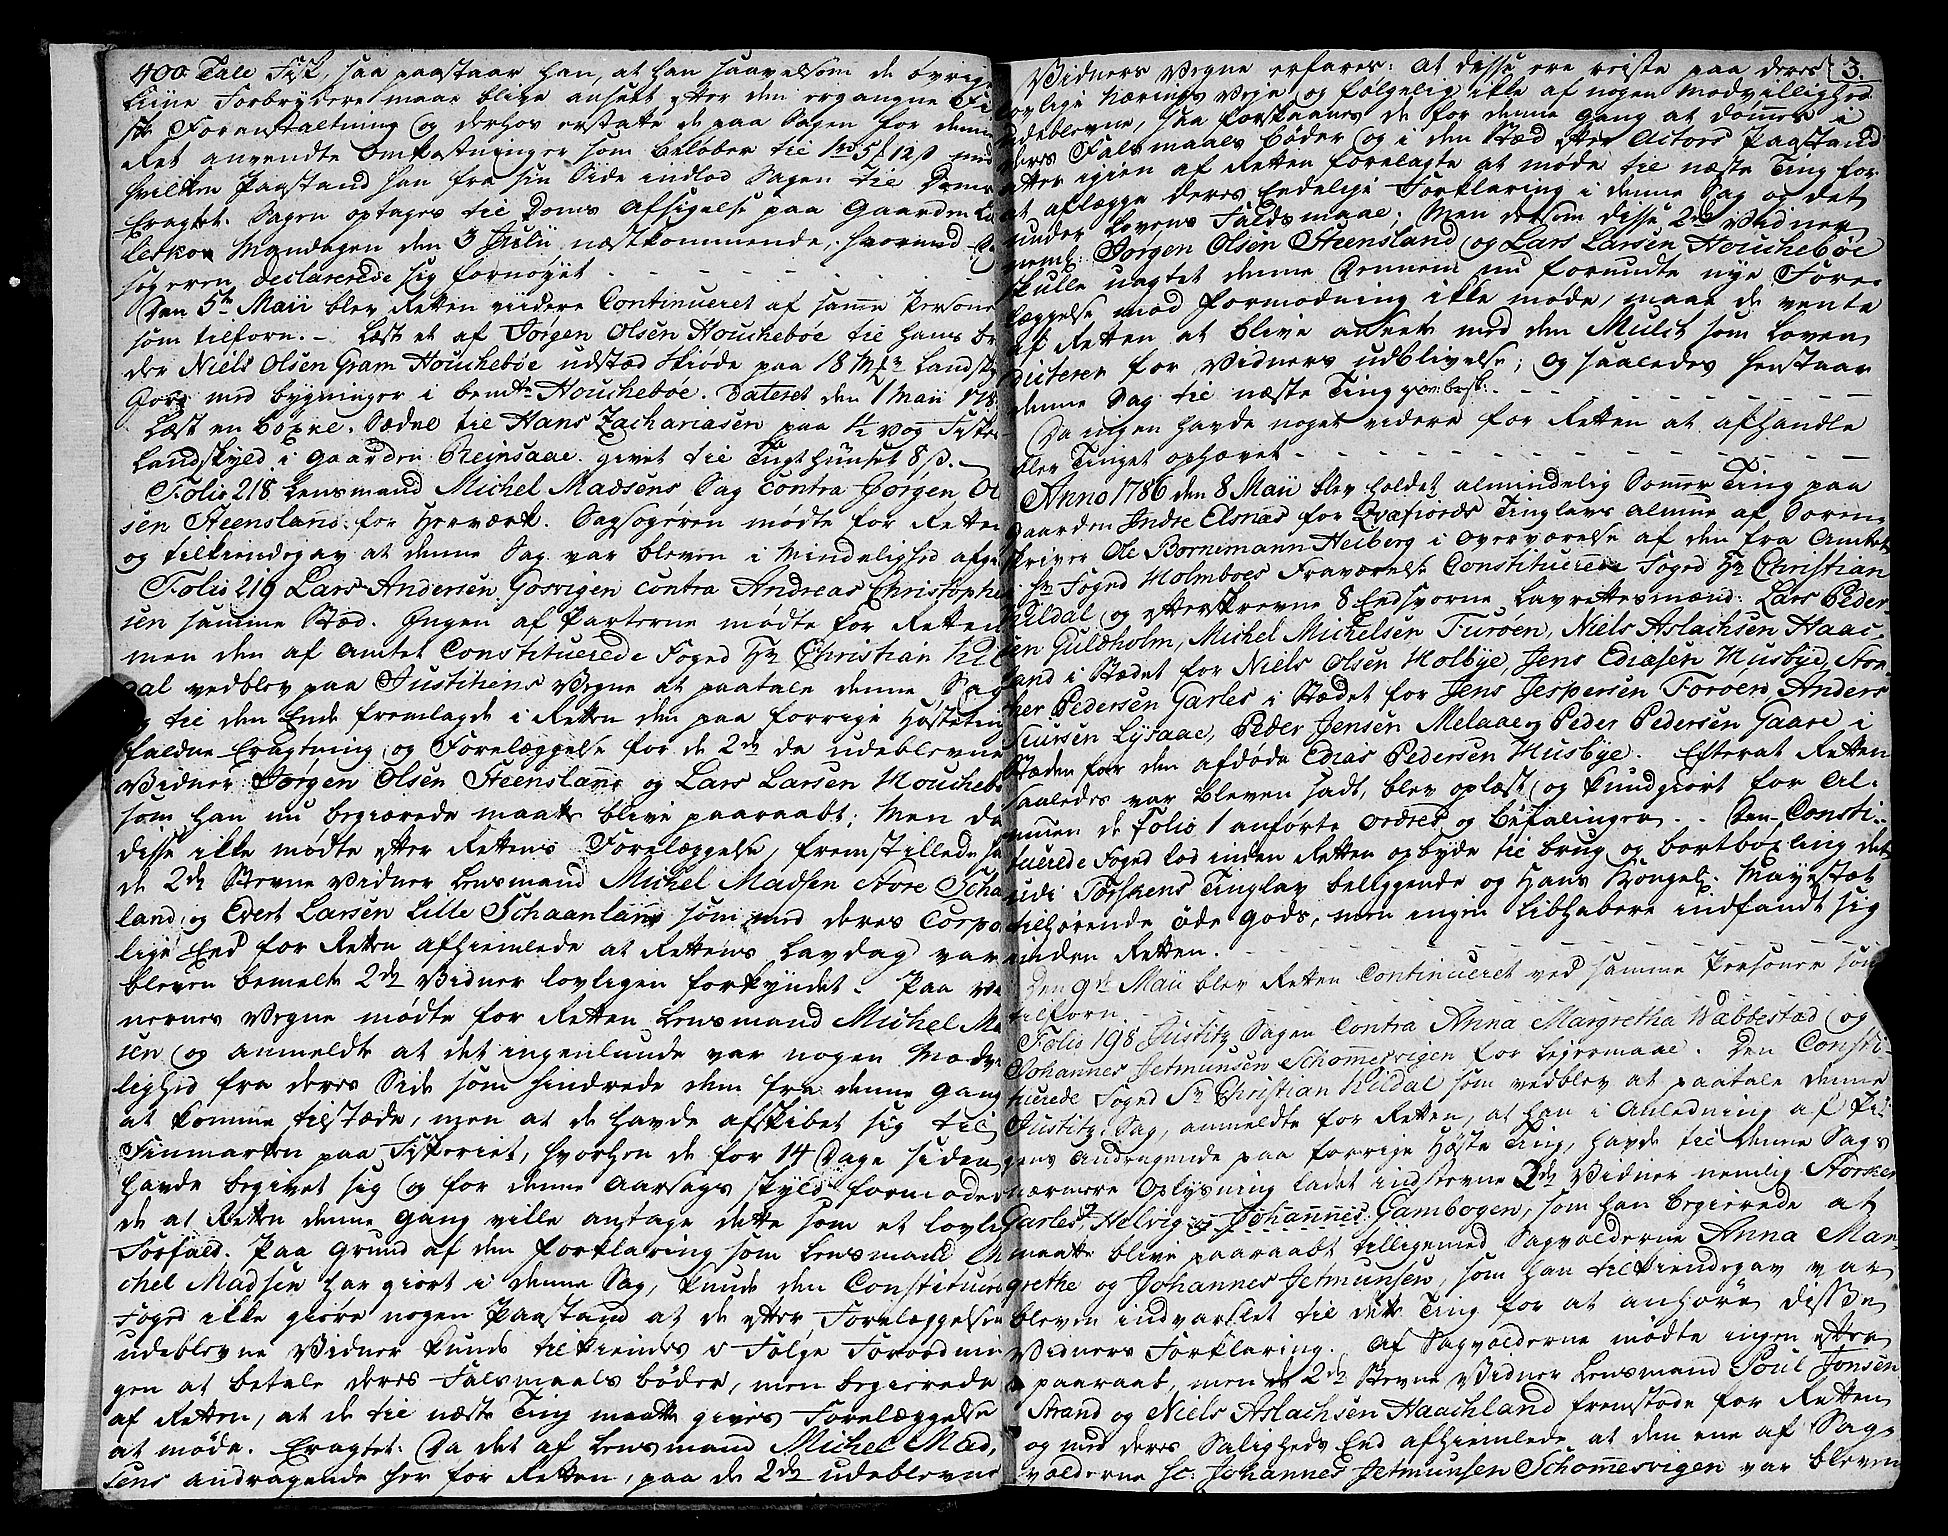 400 Tale Fisk, saa paastaar han, at han saavelsom de øvrige
Liine Forbrydere maae blive ansett efter den ergangne Fi-
ske Foranstaltning og derhos erstatte de paa Sagen for denne
Ret anvendte Omkostninger som beløber til 1 rd 5 ƒ 12 s med
hvilken Paastand han fra sin Side indlod Sagen til Doms
Eragtet: Sagen optages til Doms Afsigelse paa Gaarden
Mandagen den 3 Julii næstkommende. hvormed
sogeren declarerede sig fornøyet
Den 5te Maii blev Retten viidere Continueret af samme Persone
som tilforn. - Læst et af Jørgen Olsen Houchebøe til hans br
der Niels Olsen Gram Houchebøe udstæd Skiøde paa 18 Landsk
Gods med bygninger i bemte Houchebøe. Dateret den 1 Maii 178
Læst en Boxel Sædel til Hans Zachariasen paa ½ Vog Fiskes
Landskyld i Gaarden Reinsaae. givet til Tugthuuset 8 s.
Folio 218 Lensmand Michel Madsens Sag contra Jørgen Ol
sen Steensland for Herværk. Sagsogeren mødte for Retten
og tilkiendegav at denne Sag var bleven i Mindelighed afgi
Folio 219 Lars Andersen Gosvigen contra Andreas Christophe
sen samme Stæd. Ingen af Parterne mødte for Retten
men den af Amtet Constituerede Foged Hr Christian Kil
dal vedblev paa Justitiens Vegne at paatale denne Sag
og til den Ende fremlagde i Retten den paa forrige Høsteting
faldne Eragtning og Forelæggelse for de 2de da udeblevne
Vidner Jørgen Olsen Steensland og Lars Larsen Houchebø
som han nu begiærede maatte blive paaraabt; Men da
disse ikke mødte efter Rettens Forelæggelse, fremstillede sig
de 2de Stevne Vidner Lensmand Michel Madsen Store Scha
land og Evert Larsen Lille Schaanland som med deres Corpo
lige Eed for Retten afhiemlede at Rettens Lavdag var
bleven bemelte 2de Vidner lovligen forkyndet. Paa Vi
nernes Vegne mødte for Retten Lensmand Michel Ma
sen og anmeldte at det ingenlunde var nogen Modvi
lighed fra deres Side som hindrede dem fra denne Gang
at komme tilstæde, men at de havde afskibet sig til
Finmarken paa Fiskeriet, hvorhen de for 14 Dage siden
havde begivet sig og for denne Aarsags skyld formode
de at Retten denne Gang ville antage dette som et lovli
Forfald. Paa Grund af den Forklaring som Lensmand Mi
chel Madsen har giort i denne Sag, kunde den Constitue
Foged ikke giøre nogen Paastand at de efter Forelæggelsen
udeblevne Vidner kunde tilkiendes i Følge Forordnin
gen at betale deres Falsmaals bøder, men begierede
af Retten, at de til næste Ting maatte gives Forelæggelse
at møde. Eragtet: Da det af Lensmand Michel Mad,
sens andragende her for Retten, paa de 2de udeblevne
3.
Vidners Vegne erfares: at disse ere reiste paa deres
lovlige Nærings Veje og følgelig ikke af nogen Modvillighed
udeblevne, saa forskaanes de for denne Gang at dømmes i
deres Falsmaals bøder og i den Stæd efter Actors Paastand
atter igien af Retten forelagte at møde til næste Ting for
at aflægge deres Endelige Forklaring i denne Sag og det
under Lovens Faldsmaal; Men dersom disse 2de Vidner
neml: Jørgen Olsen Steensland og Lars Larsen Houchebøe
skulle uagtet denne dennem nu forundte nye Fore-
læggelse mod formodning ikke møde, maae de vente
af Retten at blive anseete med den Mulct som Loven
dicterer for Vidners udblivelse; og saaledes henstaar
denne Sag til næste Ting
Da ingen havde noget videre for Retten at afhandle
blev Tinget ophævet
Anno 1786 den 8 Maii blev holdet almindelig Sommer Ting paa
Gaarden Indre Elsnæs for Qvæfiords Tinglavs Almue af Soren-
skriver Ole Bornemann Heiberg i Overværelse af den fra Amtet
i Hr Foged Holmboes Fraværelse Constituerede Foged Hr Christian
Kildal og efterskrevne 8 Eedsvorne Lavrettesmænd: Lars Peder-
sen Guldholm, Michel Michelsen Furøen, Niels Aslachsen Haac-
land i Stædet for Niels Olsen Molbye, Jens Ediasen Husbye, Stor-
ker Pedersen Garles i Stædet for Jens Jespersen Forøen, Anders
Siursen Lysaae, Peder Jensen Melaae og Peder Pedersen Gaare i
Stæden for den afdøde Edias Pedersen Husbye. Efterat Retten
saaledes var bleven sadt, blev oplæst og kundgiort for Al-
muen de Folio 1 anførte Ordres og befalinger. Den Consti-
tuerede Foged lod inden Retten opbyde til brug og bortboxling det
udi Torskens Tinglav beliggende og Hans Kongel: Mayestæt
tilhørende øde Gods, men ingen Liebhabere indfandt sig
inden Retten.
Den 9de Maii blev Retten Continueret ved samme Personer som
tilforn.
Folio 198 Justitz Sagen Contra Anna Margretha Wabbestad og
Johannes Jetmunsen Schommesvigen for Lejermaal. Den Consti-
tuerede Foged Sr Christian Kildal som vedblev at paatale denne
Justitz Sag, anmeldte for Retten, at han i Anledning af Pi-
gens Andragende paa forrige Høste Ting, havde til denne Sags
nærmere Oplysning ladet indstevne 2de Vidner nemlig Storker
Garles, Helvig og Johannes Gambogen, som han begierede at
maatte blive paaraabt tilligemed Sagvolderne Anna Mar-
grethe og Johannes Jetmunsen, som han tilkiendegav var
bleven indvarslet til dette Ting for at anhøre disse
Vidners Forklaring. Af Sagvolderne mødte ingen efter
paaraab, men de 2de Stevne Vidner Lensmand Poul Jonsen
Strand og Niels Aslachsen Haachland fremstode for Retten
og med deres Saligheds Eed afhiemlede at den ene af Sag-
volderne sc: Johannes Jetmunsen Schommesvigen var bleven